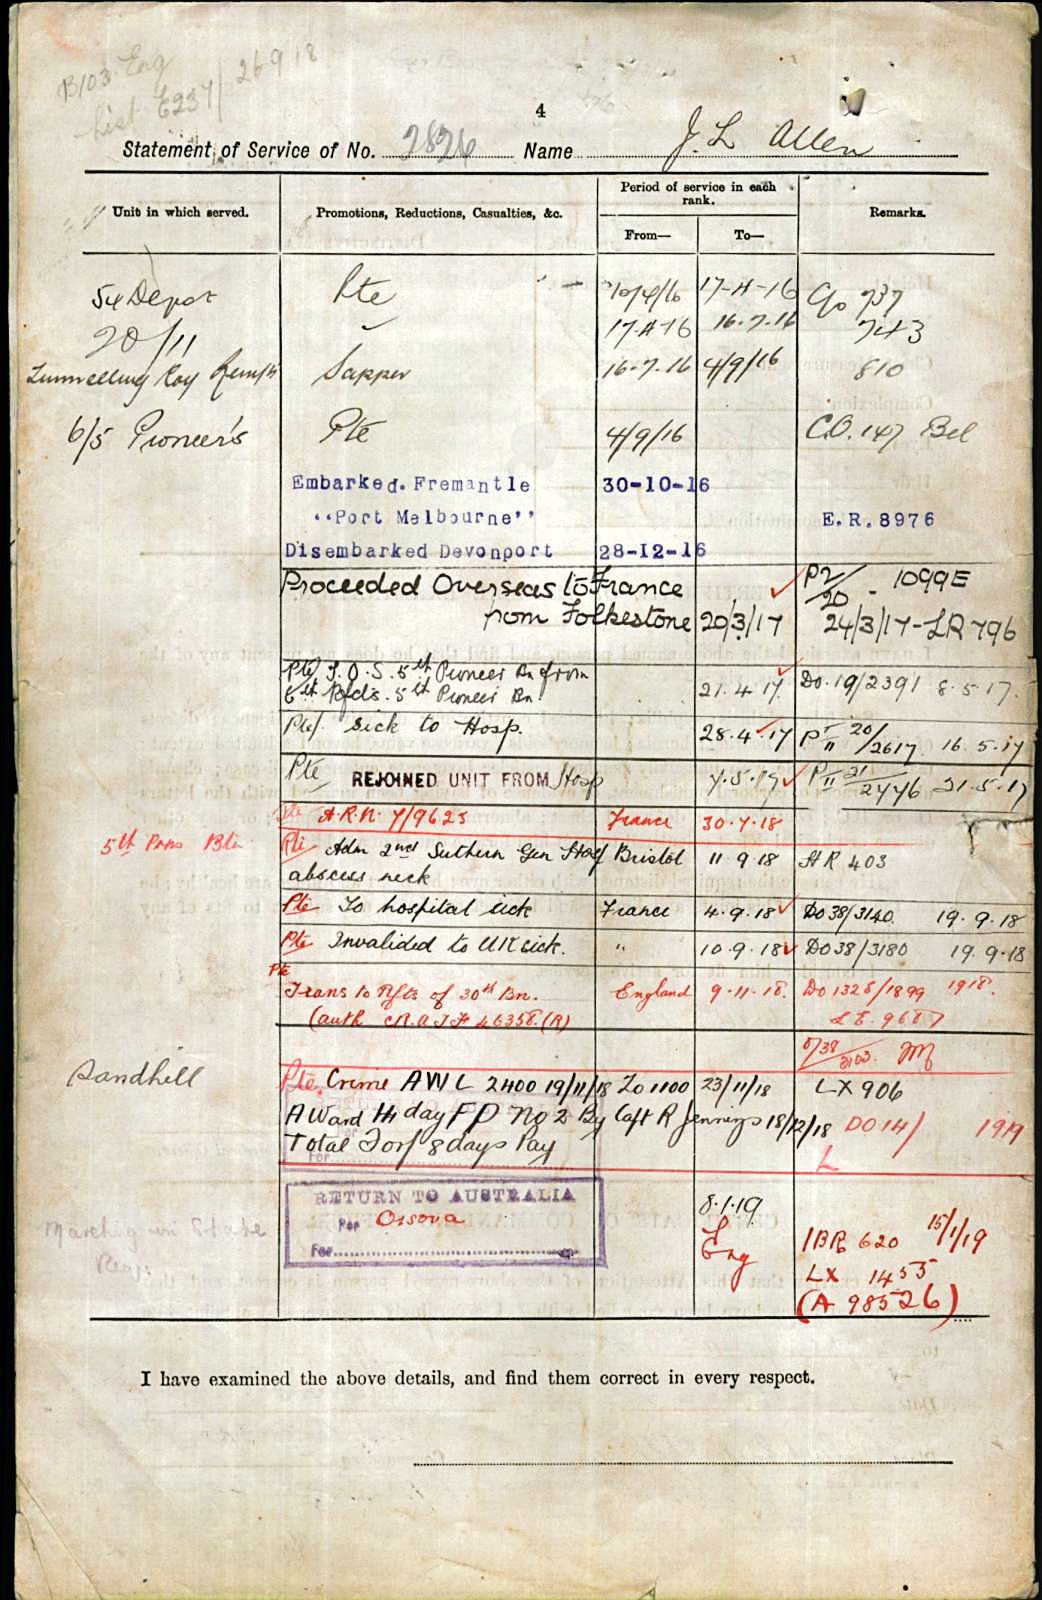 B103 Eng
List E237/ 26 9 18
4
Statement of Service of No. 2826 Name J. L Allen
Unit in which served. Promotions, Reductions, Casualties, &c. Period of service in each rank. Remarks.
From— To—
54 Depot Pte 10/4/16 17-4-16 Co 737
20/11 " 17-4-16 16-7-16 743
Tunnelling Coy Sapper 16-7-16 4/9/16 810
6/5 Pioneer's Pte 4/9/16 C.O. 147 Bel
Embarked. Fremantle 30-10-16
"Port Melbourne" E.R. 8976
Disembarked Devonport 28-12-16
Proceeded Overseas to France P2/20 - 1099E
from Folkestone 20/3/17 24/3/17 - LR 796
Pte/ T.O.S. 5th Pioneer Bn from
6th Rfds. 5th Pioneer Bn. 21.4.17 DO.19/2391 8.5.17.
Pte/. Sick to Hosp. 28.4.17 Pt II 20/2617 16.5.17
Pte REJOINED UNIT FROM Hosp 7.5.17 Pt II 21/2776 21.5.17
Pte A.R.N. 7/9623 France 30.7.18
5th Pnrs Btn Pte Adm 2nd Suthern Gen Hosp Bristol 11 9 18 HR 403
abscess neck
Pte To hospital sick France 4.9.18 DO38/3140. 19.9.18
Pte Invalided to UK sick. " 10.9.18 DO38/3180 19.9.18
Pte
Trans to Rfts of 30th Bn. England 9-11-18. DO 1328/1899 1918.
(auth CRAIF 46358.(R) LE. 9687
5/38/3103.
Sandhill Pte. Crime AWL 2400 19/11/18 To 1100 23/11/18 LX 906
Award 14 day FP No 2 By Capt R Jennings 18/12/18 DO 14/ 1919
Total Forf 8 days Pay L
RETURN TO AUSTRALIA 8.1.19
Per Ossova L 1BR 620 15/1/19
For Eng LX 1455
Marching in State (A 98526)
I have examined the above details, and find them correct in every respect.